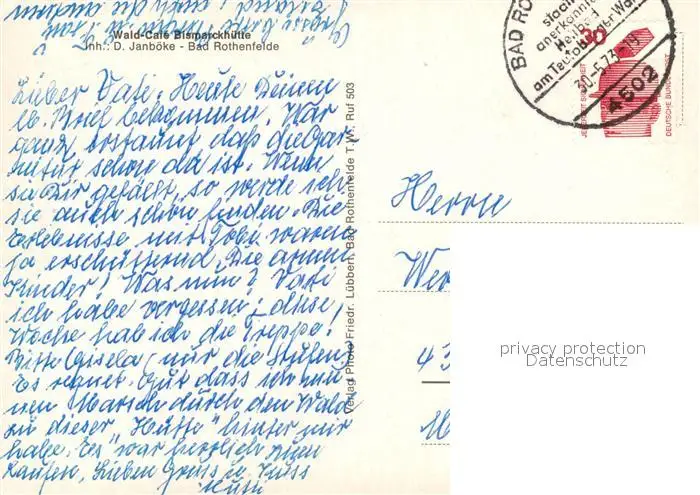 Wald-Café Bismarckhütte
Inh.: D. Janböke - Bad Rothenfelde
Lieber Vati! Heute Deinen
lb. Brief bekommen. War
ganz erstaunt, daß die Gar-
nitur schon da ist. Wenn
sie Dir gefällt, so werde ich
sie auch schön finden. Die
Erlebnisse mit Tobi waren
ja erschütternd. Die armen
Kinder! Was nun? Vati
ich habe vergessen, diese
Woche hab ich die Treppe.
Bitte Gisela, nur die Stufen.
Es regnet. Gut dass ich mei-
nen Marsch durch den Wald
zu dieser "Hütte" hinter mir
habe. Es war herrlich zum
Laufen. Lieben Gruss u. Kuss
Verlag Photo Friedr. Lübben, Bad Rothenfelde T.W. Ruf 503
BAD RO
staatl.
anerkannte
Heilbad
am Teutob. Wald
30.-5.73-19
4502
30
JEDERZEIT SICHERHEIT
DEUTSCHE BUNDESPOST
Herrn
Wer
43
privacy protection
Datenschutz